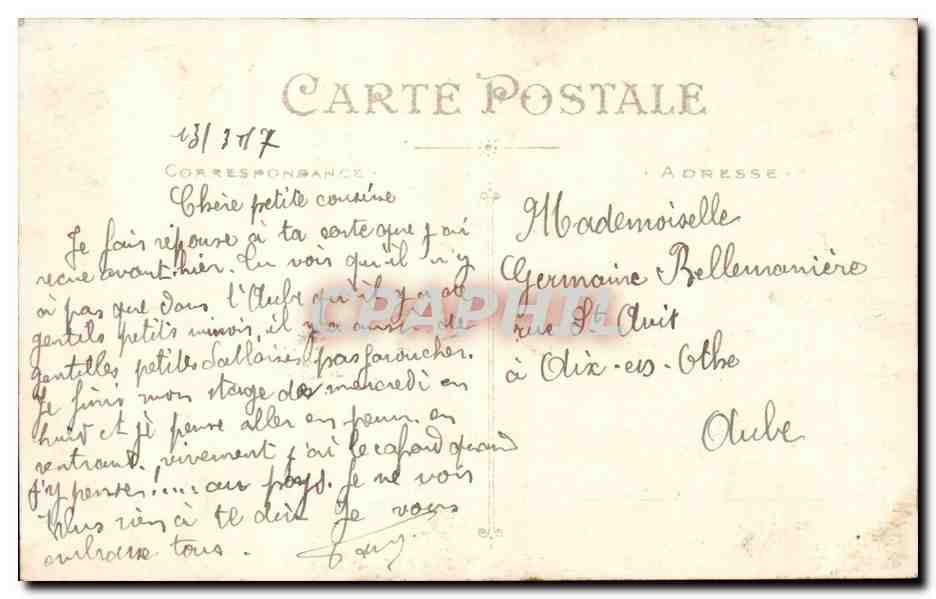 CARTE POSTALE
13/3 17
CORRESPONDANCE
Chère petite cousine
Je fais réponse à ta carte que j'ai
reçue avant.hier. Tu vois qu'il n'y
à pas que dans l'Aube qu'il y a de
gentils petits minois, il y a aussi de
gentilles petites Sablaises pas farouches.
Je finis mon stage de mercredi en
huit et je pense aller en perm. en
rentrant, vivement j'ai le cafard quand
j'y pense!.... au pays. Je ne vois
plus rien à te dire Je vous
embrasse tous.
ADRESSE
Mademoiselle
Germaine Bellemanière
rue St Avit
à Aix-en-Othe
Aube
CPAPHIL